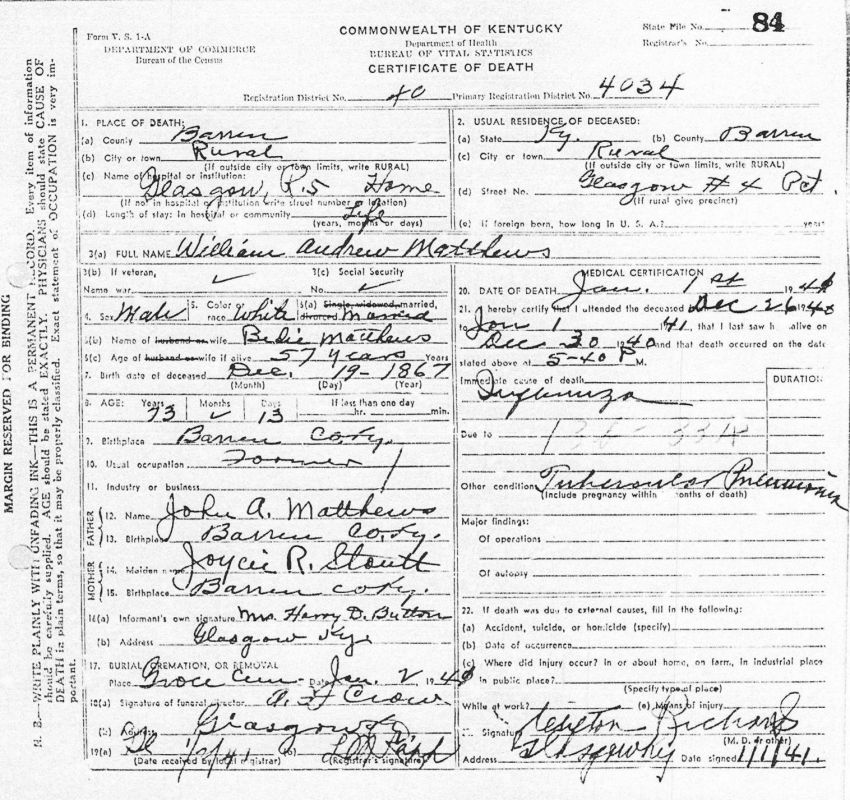 Form V. S. 1-A
DEPARTMENT OF COMMERCE
Bureau of the Census
COMMONWEALTH OF KENTUCKY
Department of Health
BUREAU OF VITAL STATISTICS
CERTIFICATE OF DEATH
State File No. 84
Registrar's No.
Registration District No. 40 Primary Registration District No. 4034
MARGIN RESERVED FOR BINDING
N. B.—WRITE PLAINLY WITH UNFADING INK—THIS IS A PERMANENT RECORD. Every item of information
should be carefully supplied. AGE should be stated EXACTLY. PHYSICIANS should state CAUSE OF
DEATH in plain terms, so that it may be properly classified. Exact statement of OCCUPATION is very im-
portant.
1. PLACE OF DEATH:
(a) County Barren
(b) City or town Rural
(If outside city or town limits, write RURAL)
(c) Name of hospital or institution:
Glasgow, R.5 Home
(If not in hospital or institution write street number or location)
(d) Length of stay: In hospital or community Life
(years, months or days)
2. USUAL RESIDENCE OF DECEASED:
(a) State Ky. (b) County Barren
(c) City or town Rural
(If outside city or town limits, write RURAL)
(d) Street No. Glasgow # 4 Pct.
(If rural give precinct)
(e) If foreign born, how long in U. S. A.? years
3(a) FULL NAME William Andrew Matthews
3(b) If veteran,
Name war ✓
3(c) Social Security
No. ✓
4. Sex Male 5. Color or race White 6(a) Single, widowed, married, divorced Married
6(b) Name of husband or wife Birdie Matthews
6(c) Age of husband or wife if alive 57 years Years
7. Birth date of deceased Dec. 19-1867
(Month) (Day) (Year)
8. AGE: Years Months Days If less than one day
73 ✓ 13 hr. min.
9. Birthplace Barren Co. Ky.
10. Usual occupation Farmer
11. Industry or business
FATHER
12. Name John A. Matthews
13. Birthplace Barren Co. Ky.
MOTHER
14. Maiden name Joycie R. Stoutt
15. Birthplace Barren Co Ky.
16(a) Informant's own signature Mrs. Harry D. Button
(b) Address Glasgow Ky
17. BURIAL, CREMATION, OR REMOVAL
Place Groce Cem. Date Jan. 2, 1941
18(a) Signature of funeral director A. F. Crow
(b) Address Glasgow Ky
19(a) 1/2/41 (b)
(Date received by local registrar) (Registrar's signature)
MEDICAL CERTIFICATION
20. DATE OF DEATH Jan. 1st 1941
21. I hereby certify that I attended the deceased Dec 26 1940
to Jan 1 1941, that I last saw h alive on
Dec 30 1940 and that death occurred on the date
stated above at 5-40 P M.
Immediate cause of death DURATION
Influenza
Due to
Other conditions Tubercular Pneumonia
(Include pregnancy within months of death)
Major findings:
Of operations
Of autopsy
22. If death was due to external causes, fill in the following:
(a) Accident, suicide, or homicide (specify)
(b) Date of occurrence
(c) Where did injury occur? In or about home, on farm, in industrial place
in public place?
(Specify type of place)
While at work? (e) Means of injury
23. Signature Richards
(M. D. or other)
Address Glasgow Ky Date signed 1/1/41.